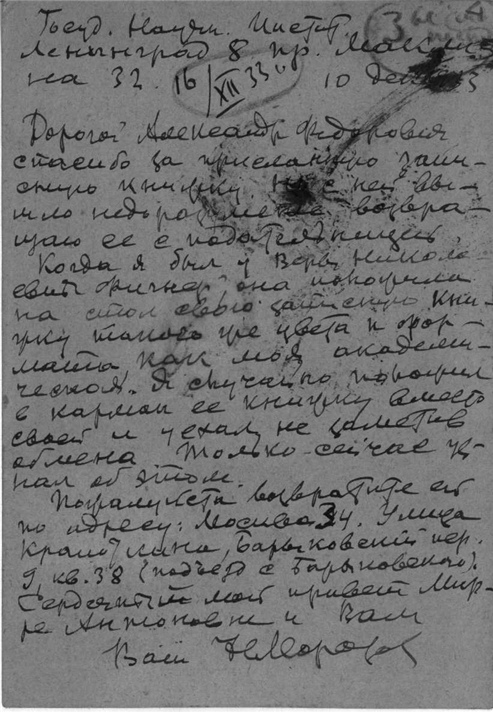 Госуд. Научн. Инстит.
Ленинград 8 пр. Макли-
на 32. 16/XII 33 10 дек
Дорогой Александр Федорович
спасибо за присланную запи-
сную книжку. Но с ней вы-
шло недоразумение возвра-
щаю ее с
Когда я был у Веры Никола-
евны Фигнер она положила
на стол свою записную кни-
жку такого же цвета и фор-
мата как моя академи-
ческая. Я случайно положил
в карман ее книжку вместо
своей и уехал не заметив
обмена. Только сейчас уз-
нал об этом.
Пожалуйста возвратите ей
по адресу: Москва 34. Улица
Кропоткина, Барыковский пер.
9, кв. 38 (подъезд с Барыковского).
Сердечный мой привет Мир-
ре Антоновне и Вам
Ваш Н Морозов